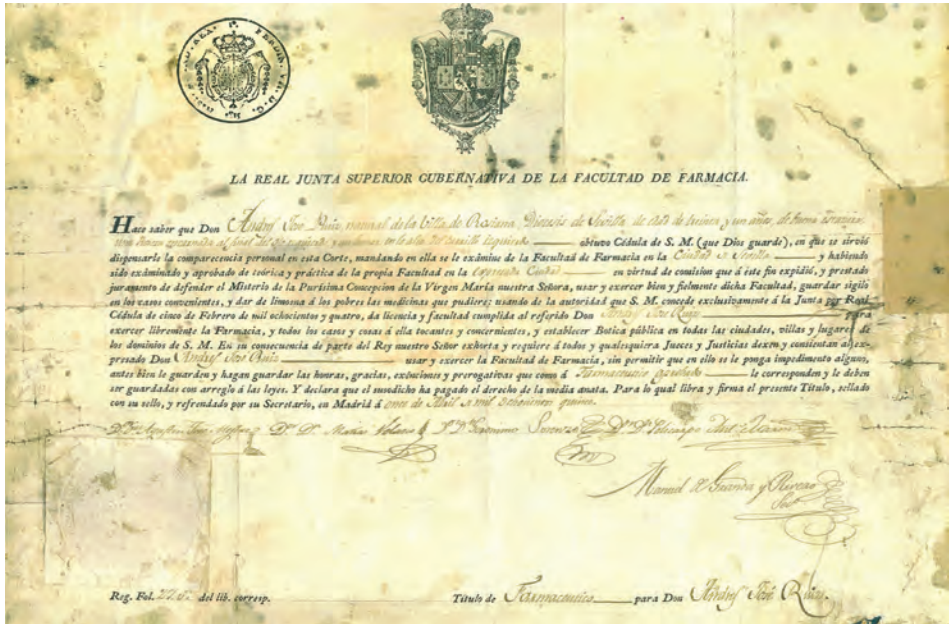 FERDIN. VII. D. G.
LA REAL JUNTA SUPERIOR GUBERNATIVA DE LA FACULTAD DE FARMACIA.
Hace saber que Don Andres José Ruiz, natural de la Villa de Diocesis de Sevilla de edad de treinta y un años, de buena estatura
obtuvo Cédula de S. M. (que Dios guarde), en que se sirvió
dispensarle la comparecencia personal en esta Corte, mandando en ella se le exâmine de la Facultad de Farmacia en la Ciudad de Sevilla y habiendo
sido exâminado y aprobado de teórica y práctica de la propia Facultad en la expresada Ciudad en virtud de comision que á este fin expidió, y prestado
juramento de defender el Misterio de la Purísima Concepcion de la Virgen María nuestra Señora, usar y exercer bien y fielmente dicha Facultad, guardar sigilo
en los casos convenientes, y dar de limosna á los pobres las medicinas que pudiere; usando de la autoridad que S. M. concede exclusivamente á la Junta por Real
Cédula de cinco de Febrero de mil ochocientos y quatro, da licencia y facultad cumplida al referido Don Andres José Ruiz para
exercer libremente la Farmacia, y todos los casos y cosas á ella tocantes y concernientes, y establecer Botica pública en todas las ciudades, villas y lugares de
los dominios de S. M. En su consecuencia de parte del Rey nuestro Señor exhorta y requiere á todos y qualesquiera Jueces y Justicias dexen y consientan al ex-
presado Don Andres José Ruiz usar y exercer la Facultad de Farmacia, sin permitir que en ello se le ponga impedimento alguno,
antes bien le guarden y hagan guardar las honras, gracias, exênciones y prerogativas que como á Farmaceutico aprobado le corresponden y le deben
ser guardadas con arreglo á las leyes. Y declara que el susodicho ha pagado el derecho de la media anata. Para lo qual libra y firma el presente Título, sellado
con su sello, y refrendado por su Secretario, en Madrid á once de Abril de mil ochocientos quince.
Manuel de
Srio
Reg. Fol. del lib. corresp. Título de Farmaceutico para Don Andres José Ruiz.